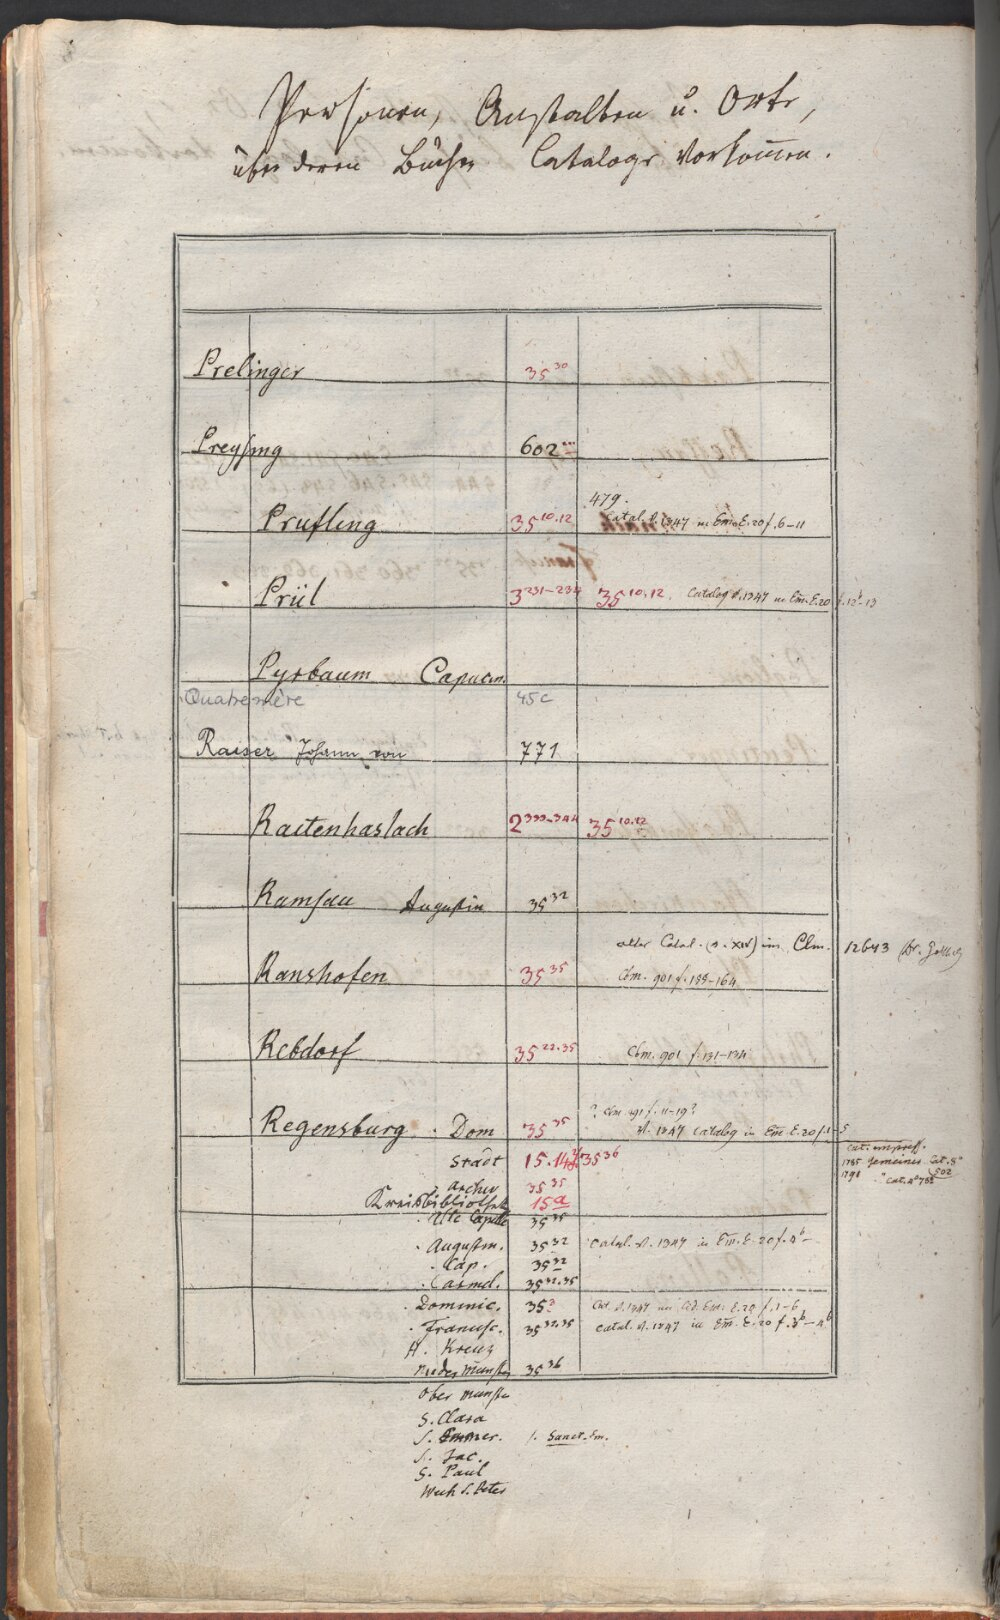 Personen, Anstalten u. Orte,
über deren Bücher Cataloge vorkommen.
Prelinger 35 30
Preysing 602
479.
Prufling 35 10.12 Catal. d. 1347 in Em. E. 20 f. 6-11
Prül 3 231-234 35 10.12. Catalog d. 1347 in Em. E. 20 f. 12b-13
Pyrbaum Capucin.
Quatremère 45c
Raiser Johann von 771
Raitenhaslach 2 333-344 35 10.12
Ramsau Augustin 35 32
alter Catal. (s. XIV) im Clm. 12643 (Dr.
Ranshofen 35 35 Cbm. 901 f. 158-164
Rebdorf 35 22.35 Cbm. 901 f. 131-134
? Cbm 991 f. 11-19?
Regensburg . Dom 35 35 d. 1347 Catalog in Em. E. 20 f. 1-5
Cat. impress.
Stadt 15. 35 36 1785 Gemeiners Cat. 8°
502
1791 " Cat. 4° 788
Archiv 35 35
Kreisbibliothek 15a
Alte Capelle 35 35
. Augustin. 35 32 Catal. d. 1347 in Em. E. 20 f. 4b-
. Cap. 35 32
. Carmel. 35 32.35
. Dominic. 35 Cat. d. 1347 in Cd. Em. E. 20 f. 1-6
. Francisc. 35 32.35 Catal. d. 1347 in Em. E. 20 f. 3b-4b
H. Kreuz
Nieder Münster 35 36
Ober münster
S. Clara
S. Emmer. s. Sanct. Em.
S. Jac.
S. Paul
Weih S. Peter